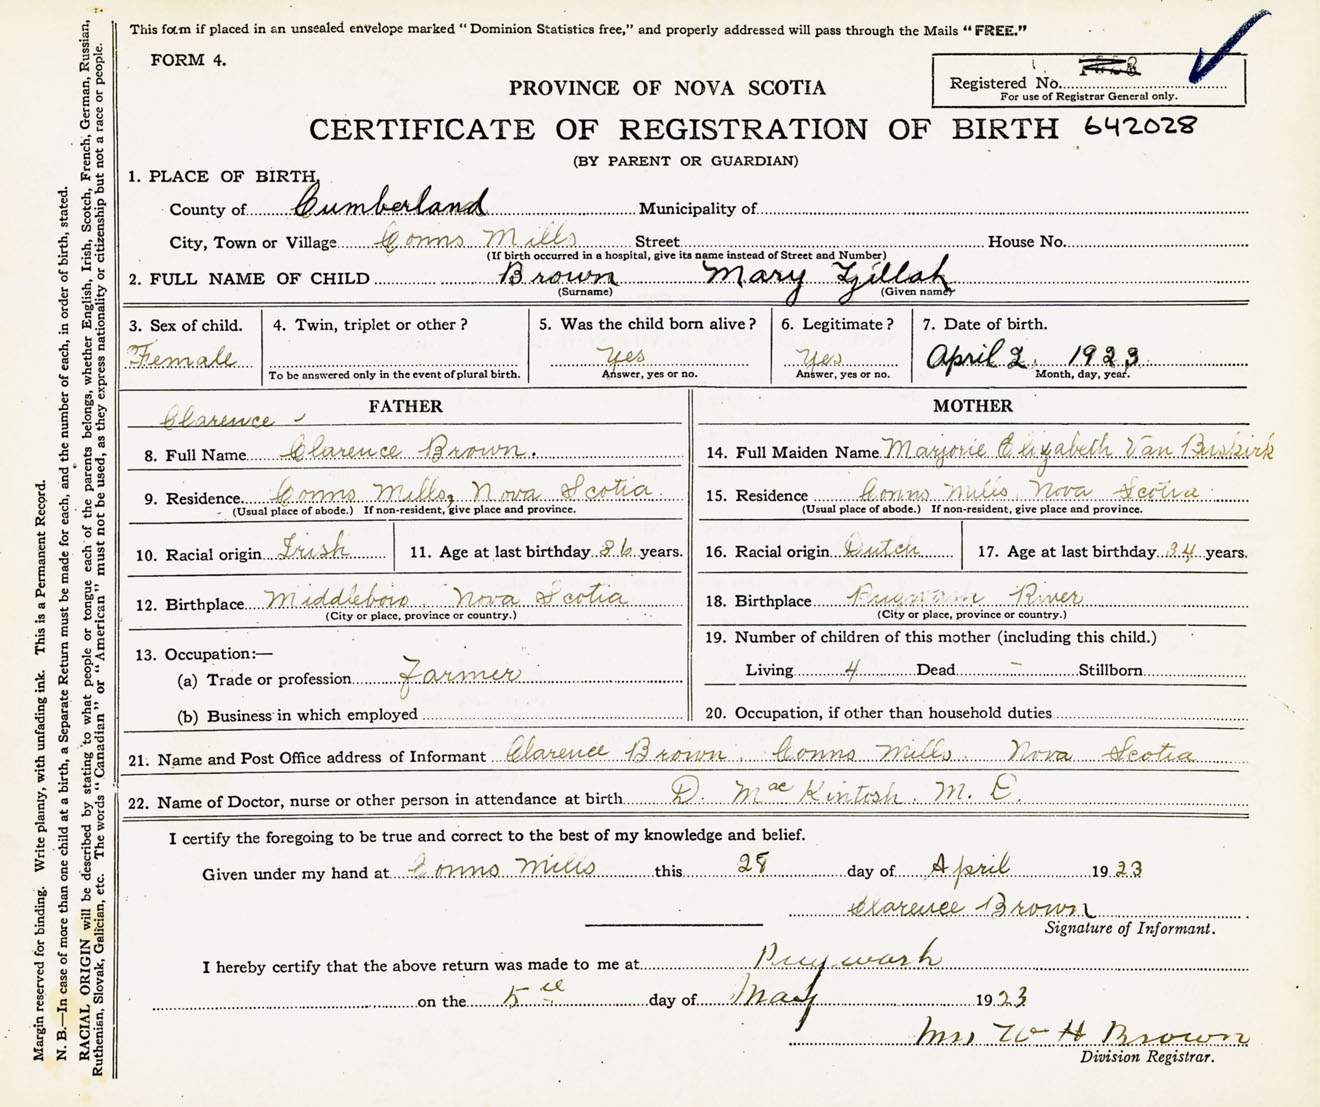 This form if placed in an unsealed envelope marked "Dominion Statistics free," and properly addressed will pass through the Mails "FREE."
FORM 4.
Registered No.
For use of Registrar General only.
PROVINCE OF NOVA SCOTIA
CERTIFICATE OF REGISTRATION OF BIRTH 642028
(BY PARENT OR GUARDIAN)
1. PLACE OF BIRTH,
County of Cumberland Municipality of
City, Town or Village Conns Mills Street House No.
(If birth occurred in a hospital, give its name instead of Street and Number)
2. FULL NAME OF CHILD Brown Mary Zillah
(Surname) (Given name)
3. Sex of child. 4. Twin, triplet or other? 5. Was the child born alive? 6. Legitimate? 7. Date of birth.
Female Yes Yes April 2. 1923
To be answered only in the event of plural birth. Answer, yes or no. Answer, yes or no. Month, day, year.
FATHER MOTHER
Clarence
8. Full Name Clarence Brown. 14. Full Maiden Name Marjorie Elizabeth Van Buskirk
9. Residence Conns Mills, Nova Scotia 15. Residence Conns Mills, Nova Scotia
(Usual place of abode.) If non-resident, give place and province. (Usual place of abode.) If non-resident, give place and province.
10. Racial origin Irish 11. Age at last birthday 36 years. 16. Racial origin Dutch 17. Age at last birthday 34 years.
12. Birthplace Middleboro, Nova Scotia 18. Birthplace River
(City or place, province or country.) (City or place, province or country.)
13. Occupation:— 19. Number of children of this mother (including this child.)
(a) Trade or profession Farmer Living 4 Dead - Stillborn
(b) Business in which employed 20. Occupation, if other than household duties
21. Name and Post Office address of Informant Clarence Brown, Conns Mills, Nova Scotia
22. Name of Doctor, nurse or other person in attendance at birth D. MacKintosh. M.
I certify the foregoing to be true and correct to the best of my knowledge and belief.
Given under my hand at Conns Mills this 28 day of April 1923
Clarence Brown
Signature of Informant.
I hereby certify that the above return was made to me at Pugwash
on the 5 day of May 1923
Mrs W H Brown
Division Registrar.
Margin reserved for binding. Write plainly, with unfading ink. This is a Permanent Record.
N. B.—In case of more than one child at a birth, a Separate Return must be made for each, and the number of each, in order of birth, stated.
RACIAL ORIGIN will be described by stating to what people or tongue each of the parents belongs, whether English, Irish, Scotch, French, German, Russian,
Ruthenian, Slovak, Galician, etc. The words "Canadian" or "American" must not be used, as they express nationality or citizenship but not a race or people.